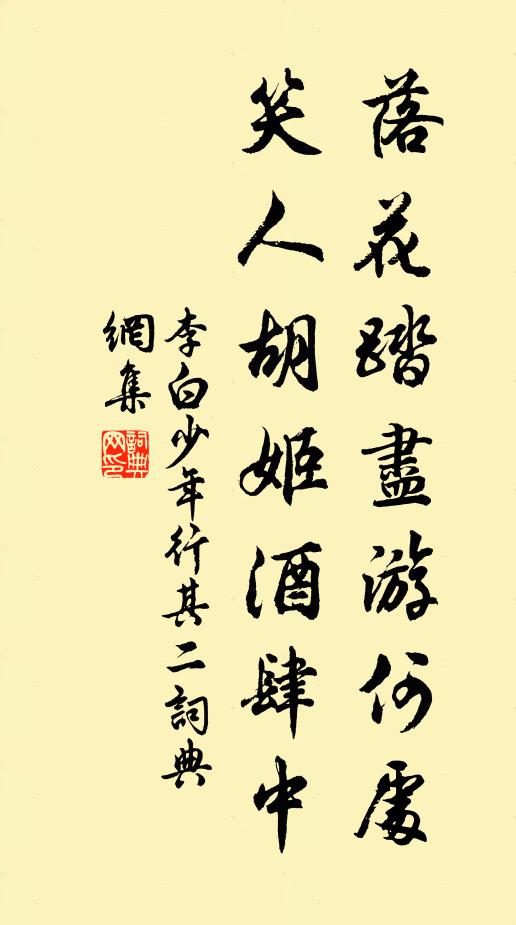 落花踏盡游何處
笑人胡姬酒肆中
李白少年行其二詞典
網集
詞典網印